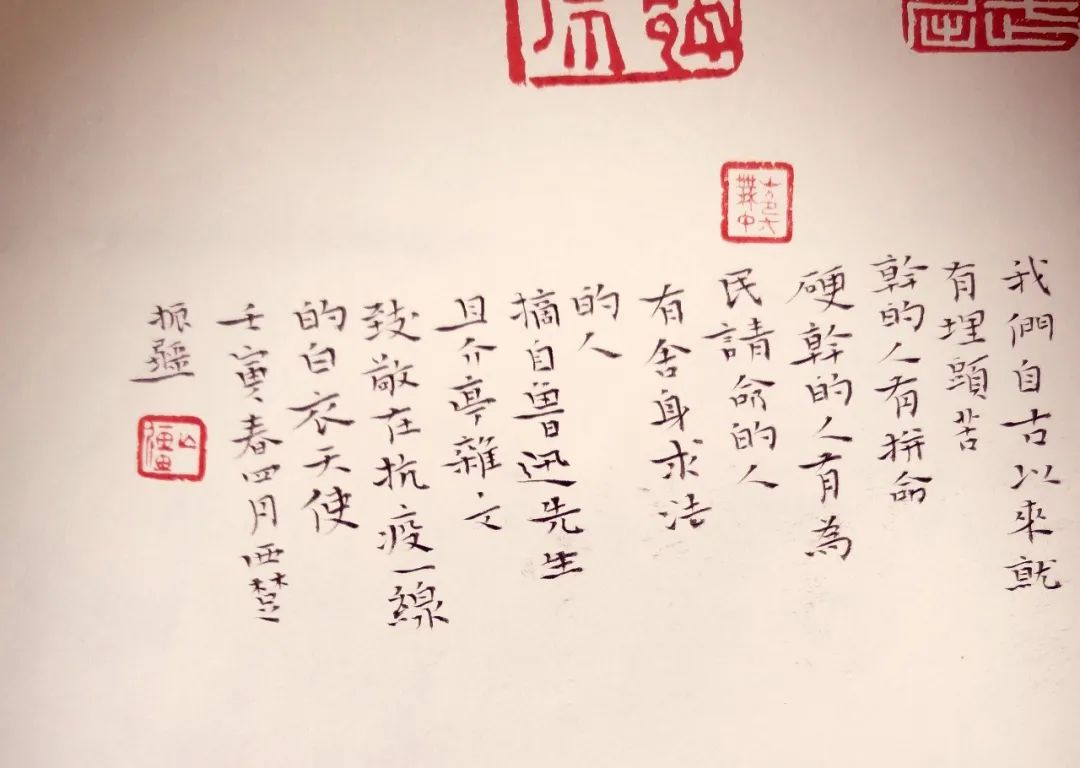 我們自古以來就
有埋頭苦
幹的人有拼命
硬幹的人有為
民請命的人
有舍身求法
的人
摘自魯迅先生
且介亭雜文
致敬在抗疫一線
的白衣天使
壬寅春四月西楚
振疆